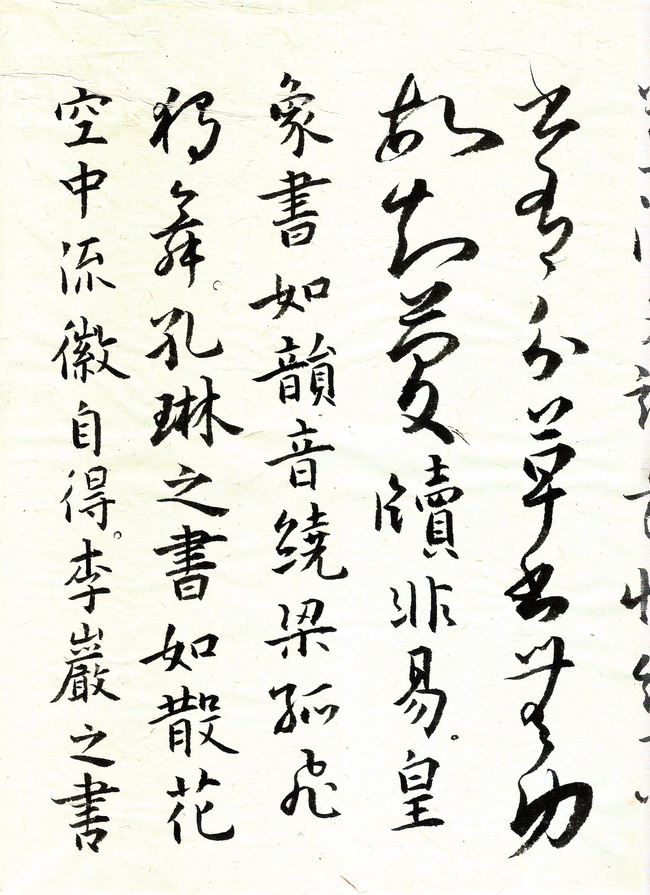 書有分草書無功
故知簡牘非易。皇
象書如韻音繞梁孤飛
獨舞。孔琳之書如散花
空中流徽自得。李巖之書